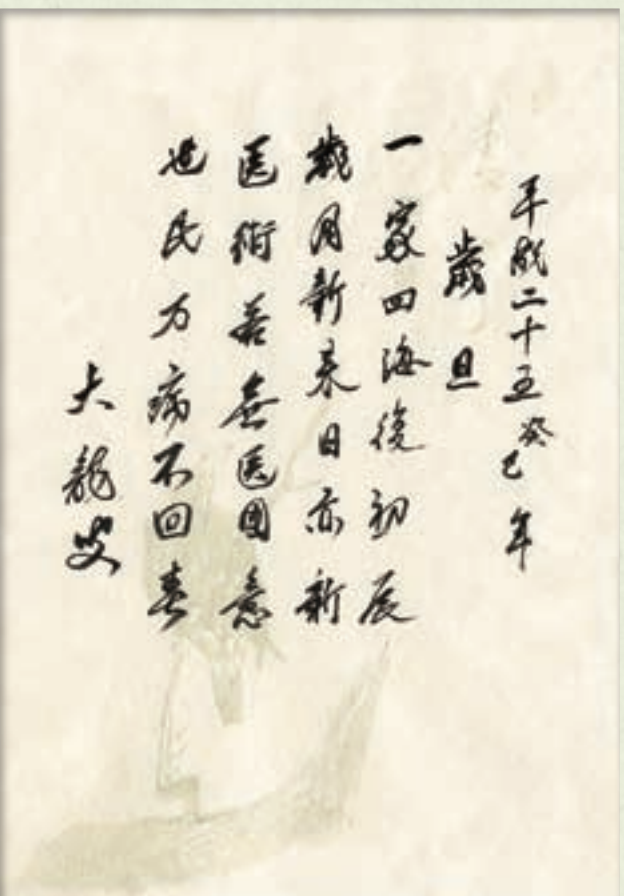 平成二十五癸巳年
歳旦
一家四海復初辰
歳月新来日亦新
医術若無医国意
世氏万病不回春
大龍叟